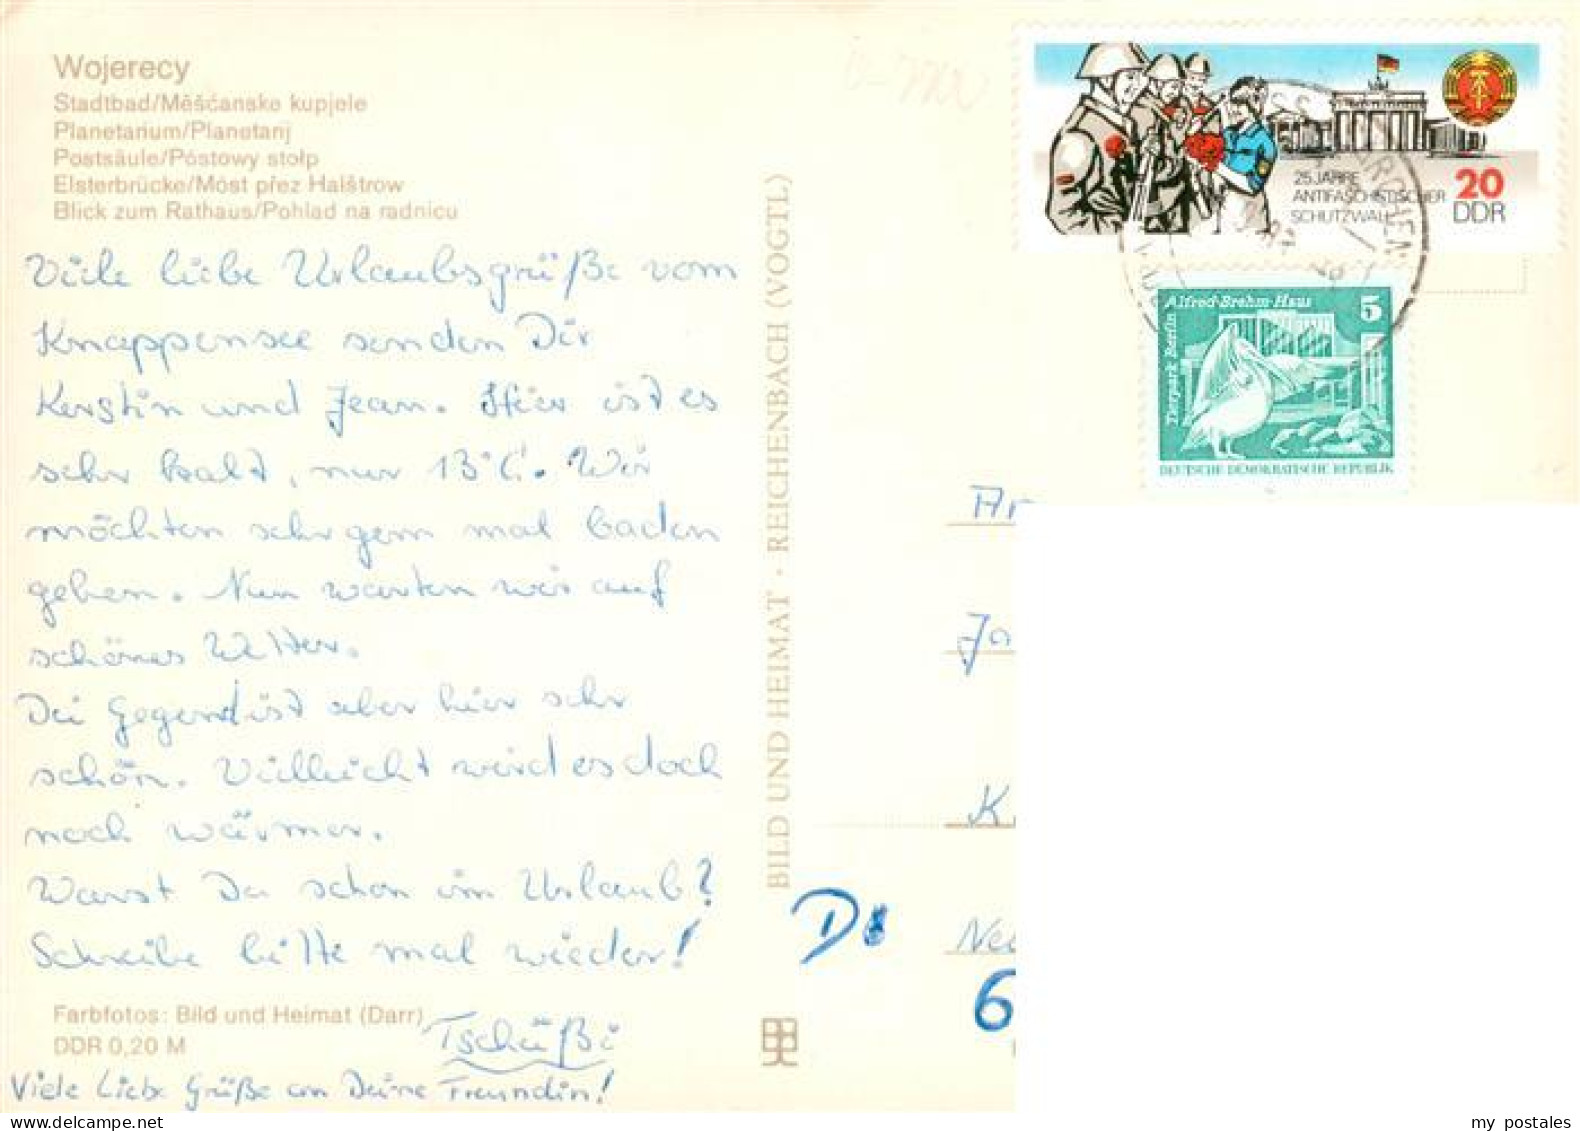 Wojerecy
Stadtbad/Měšćanske kupjele
Planetarium/Planetarij
Postsäule/Póstowy stołp
Elsterbrücke/Móst přez Halštrow
Blick zum Rathaus/Pohlad na radnicu
Viele liebe Urlaubsgrüße vom
Knappensee senden Dir
Kerstin und Jean. Hier ist es
sehr kalt, nur 13°C. Wir
möchten sehr gern mal baden
gehen. Nun warten wir auf
schönes Wetter.
Die Gegend ist aber hier sehr
schön. Vielleicht wird es doch
noch wärmer.
Warst Du schon im Urlaub?
Schreibe bitte mal wieder!
Farbfotos: Bild und Heimat (Darr)
DDR 0,20 M
Tschüßi
Viele Liebe Grüße an Deine Freundin!
BILD UND HEIMAT · REICHENBACH (VOGTL)
25 JAHRE
ANTIFASCHISTISCHER
SCHUTZWALL
20
DDR
Alfred-Brehm-Haus
5
Tierpark Berlin
DEUTSCHE DEMOKRATISCHE REPUBLIK
6
my postales